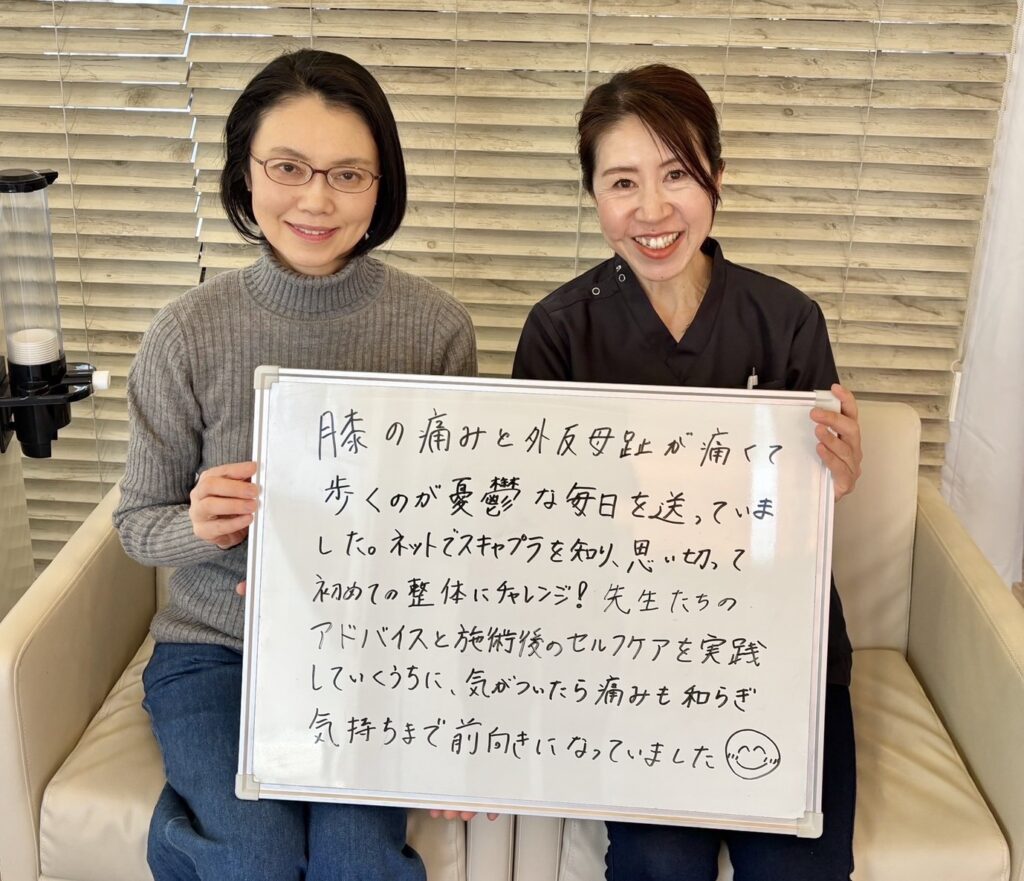 膝の痛みと外反母趾が痛くて
歩くのが憂鬱な毎日を送っていま
した。ネットでスキャプラを知り、思い切って
初めての整体にチャレンジ!先生たちの
アドバイスと施術後のセルフケアを実践
していくうちに、気がついたら痛みも和らぎ
気持ちまで前向きになっていました